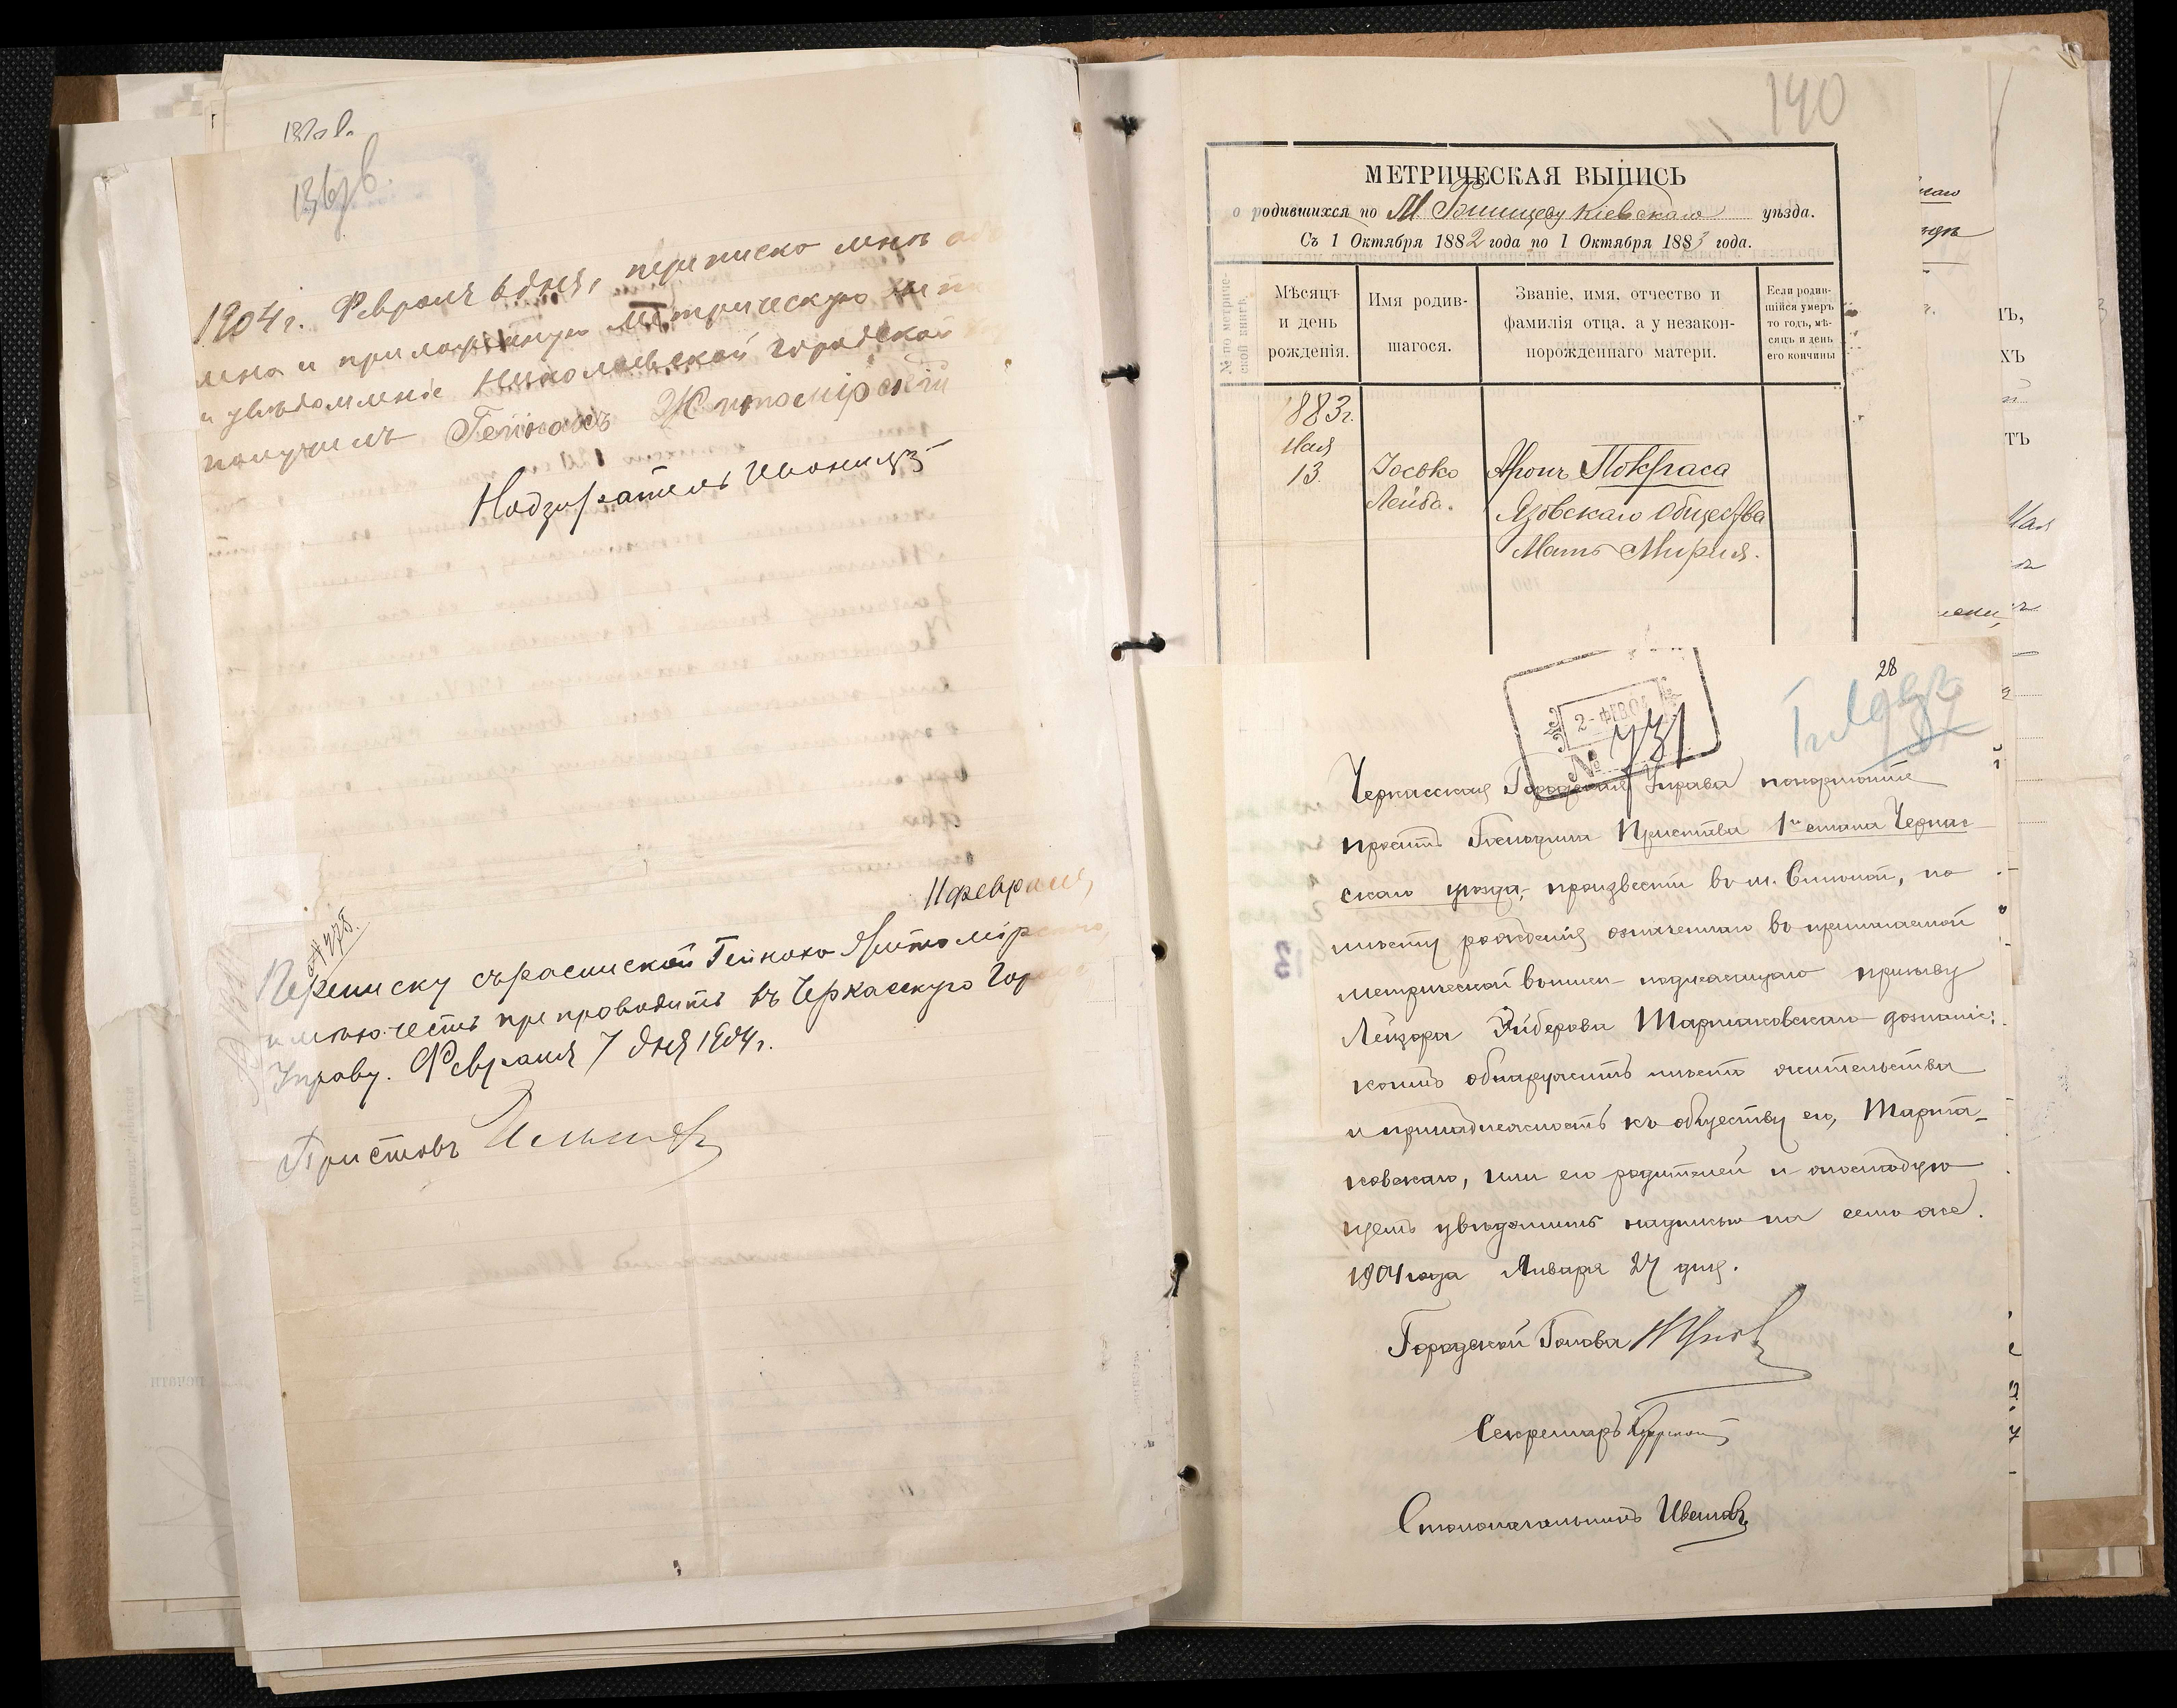 136 об.
1904 г. Февраля 6 дня, переписко мнѣ
и приложенную Метрическую
и увѣдомленіе Николаевской городской
получилъ Гейнахъ Житомірскій
Надзиратель
№ 778.
11 февраля,
Переписку съ роспиской Гейноха Житомірскаго,
имѣю честь препроводить въ Черкасскую Гор
Управу. Февраля 7 дня 1904 г.
Приставъ
140
МЕТРИЧЕСКАЯ ВЫПИСЬ
о родившихся по М. Кіевскаго уѣзда.
Съ 1 Октября 1882 года по 1 Октября 1883 года.
№ по метрической книгѣ.
Мѣсяцъ и день рожденія.
Имя родившагося.
Званіе, имя, отчество и фамилія отца, а у незаконнорожденнаго матери.
Если родившійся умеръ то годъ, мѣсяцъ и день его кончины
1883 г.
Мая
13.
Іосько
Лейба.
Аронъ Покраса
Язовскаго Общества
Мать Мириля.
28
2 - ФЕВ 04
№ 731
Черкасская Городская Управа покорнѣйше
проситъ Господина Пристава 1го стана Черкас
скаго уѣзда, произвести въ м. Смѣлой, по
мѣсту рожденія означеннаго въ прилагаемой
метрической выписи подлежащаго призыву
Лейзора Маршаковскаго дознаніе;
коимъ обнаружить мѣсто жительства
и принадлежность къ обществу его, Марша-
ковскаго, или его родителей и о послѣдую
щемъ увѣдомить надписью на семъ же.
1904 года Января 27 дня.
Городской Голова
Секретарь
Столоначальникъ Ивановъ